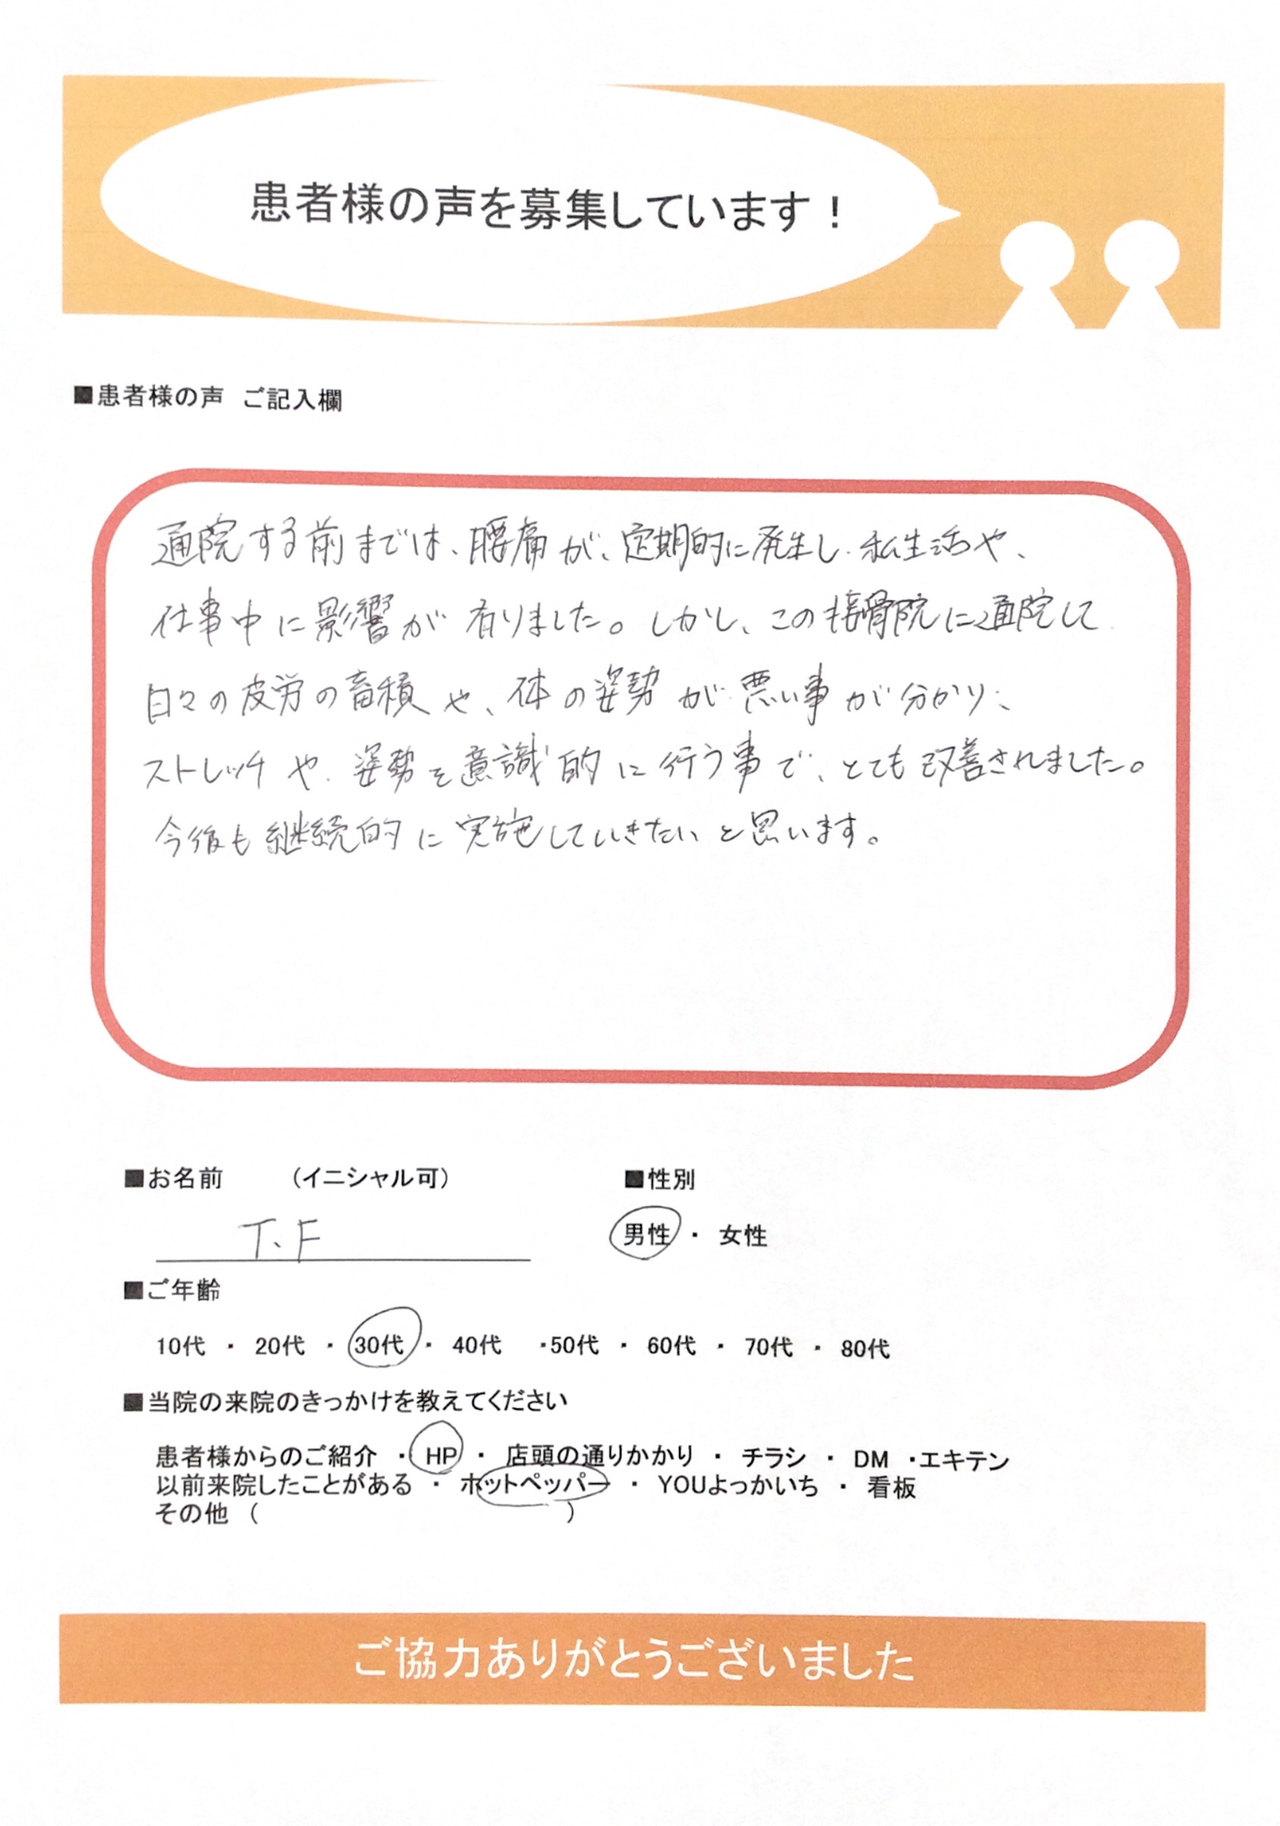 患者様の声を募集しています！
■患者様の声 ご記入欄
通院する前までは、腰痛が、定期的に発生し、私生活や、
仕事中に影響が有りました。しかし、この接骨院に通院して
日々の疲労の蓄積や、体の姿勢が悪い事が分かり、
ストレッチや、姿勢を意識的に行う事で、とても改善されました。
今後も継続的に実施していきたいと思います。
■お名前 （イニシャル可） ■性別
T.F 男性 ・ 女性
■ご年齢
10代 ・ 20代 ・ 30代 ・ 40代 ・50代 ・ 60代 ・ 70代 ・ 80代
■当院の来院のきっかけを教えてください
患者様からのご紹介 ・ HP ・ 店頭の通りかかり ・ チラシ ・ DM ・エキテン
以前来院したことがある ・ ホットペッパー ・ YOUよっかいち ・ 看板
その他 （ ）
ご協力ありがとうございました